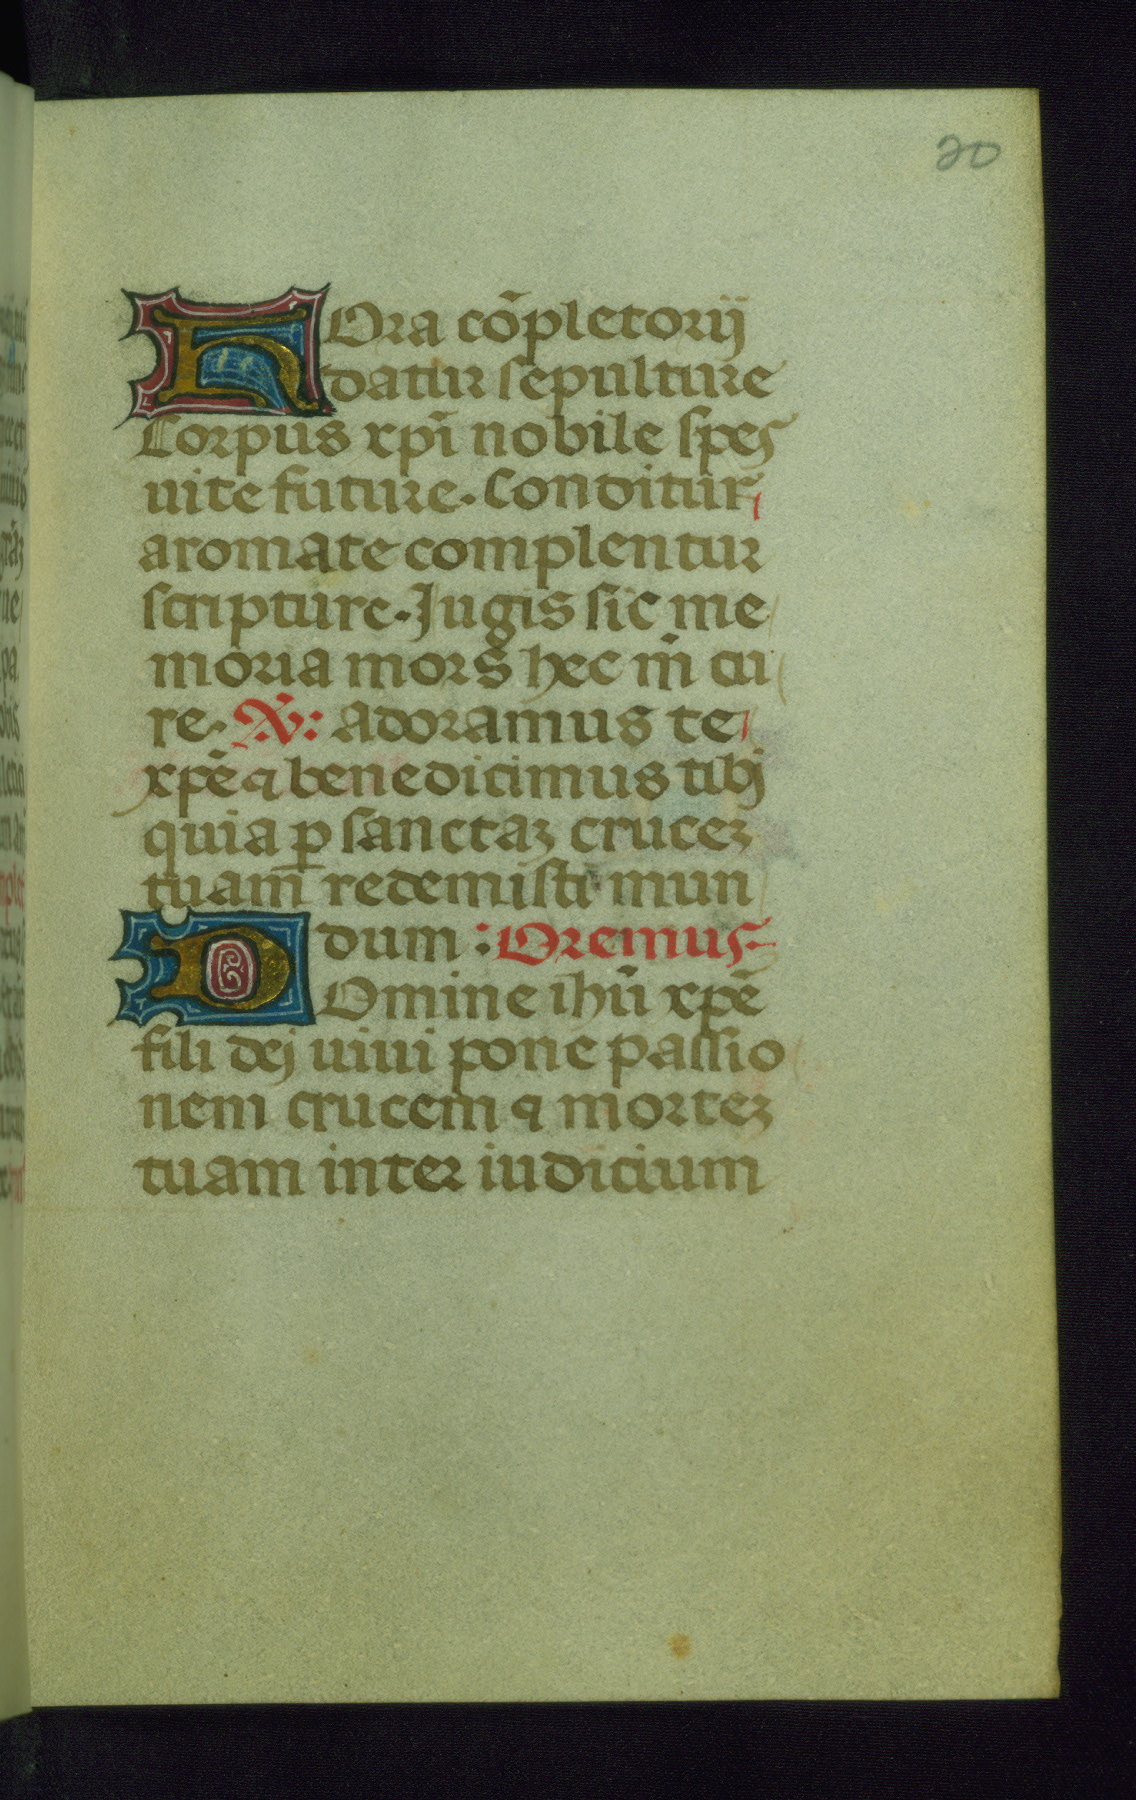 20
Hora co̅pletorij
datur sepulture
Corpus xp̅i nobile spes
uite future. Conditur
aromate complentur
scripture. Jugis sic me
moria mors hec m̅ cu
re. V̅: adoramus te
xp̅e ⁊ benedicimus tibj
quia ꝑ sanctaꝫ cruceꝫ
tuam redemisti mun
dum : Oremus
Domine ihu̅ xp̅e
fili dej uiui pone passio
nem crucem ⁊ morteꝫ
tuam inter iudicium